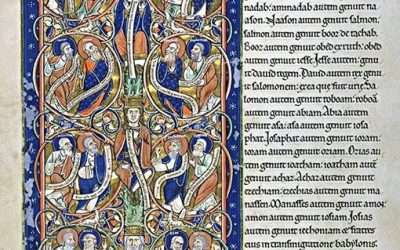 nadab: aminadab autem genuit na
ason. Naason autem genuit salmon.
salmon autem genuit booz de rachab.
Booz autem genuit obed ex ruth. obed
autem genuit iesse. Iesse autem genu
it david regem. David autem rex ge
nuit salomonem: ex ea que fuit urie. Sa
lomon autem genuit roboam: roboā
autem genuit abiam. Abia autem ge
nuit asa: asa autem genuit iosa
phat. Iosaphat autem genuit ioram:
ioram autem genuit oziam. Ozias au
tem genuit ioatham: ioatham autē
genuit achaz. Achaz autem genuit
ezechiam: ezechias autem genuit ma
nassen. Manasses autem genuit amon:
amon autem genuit iosiam. Iosias
autem genuit iechoniam et fratres
eius in transmigratione babylonis.